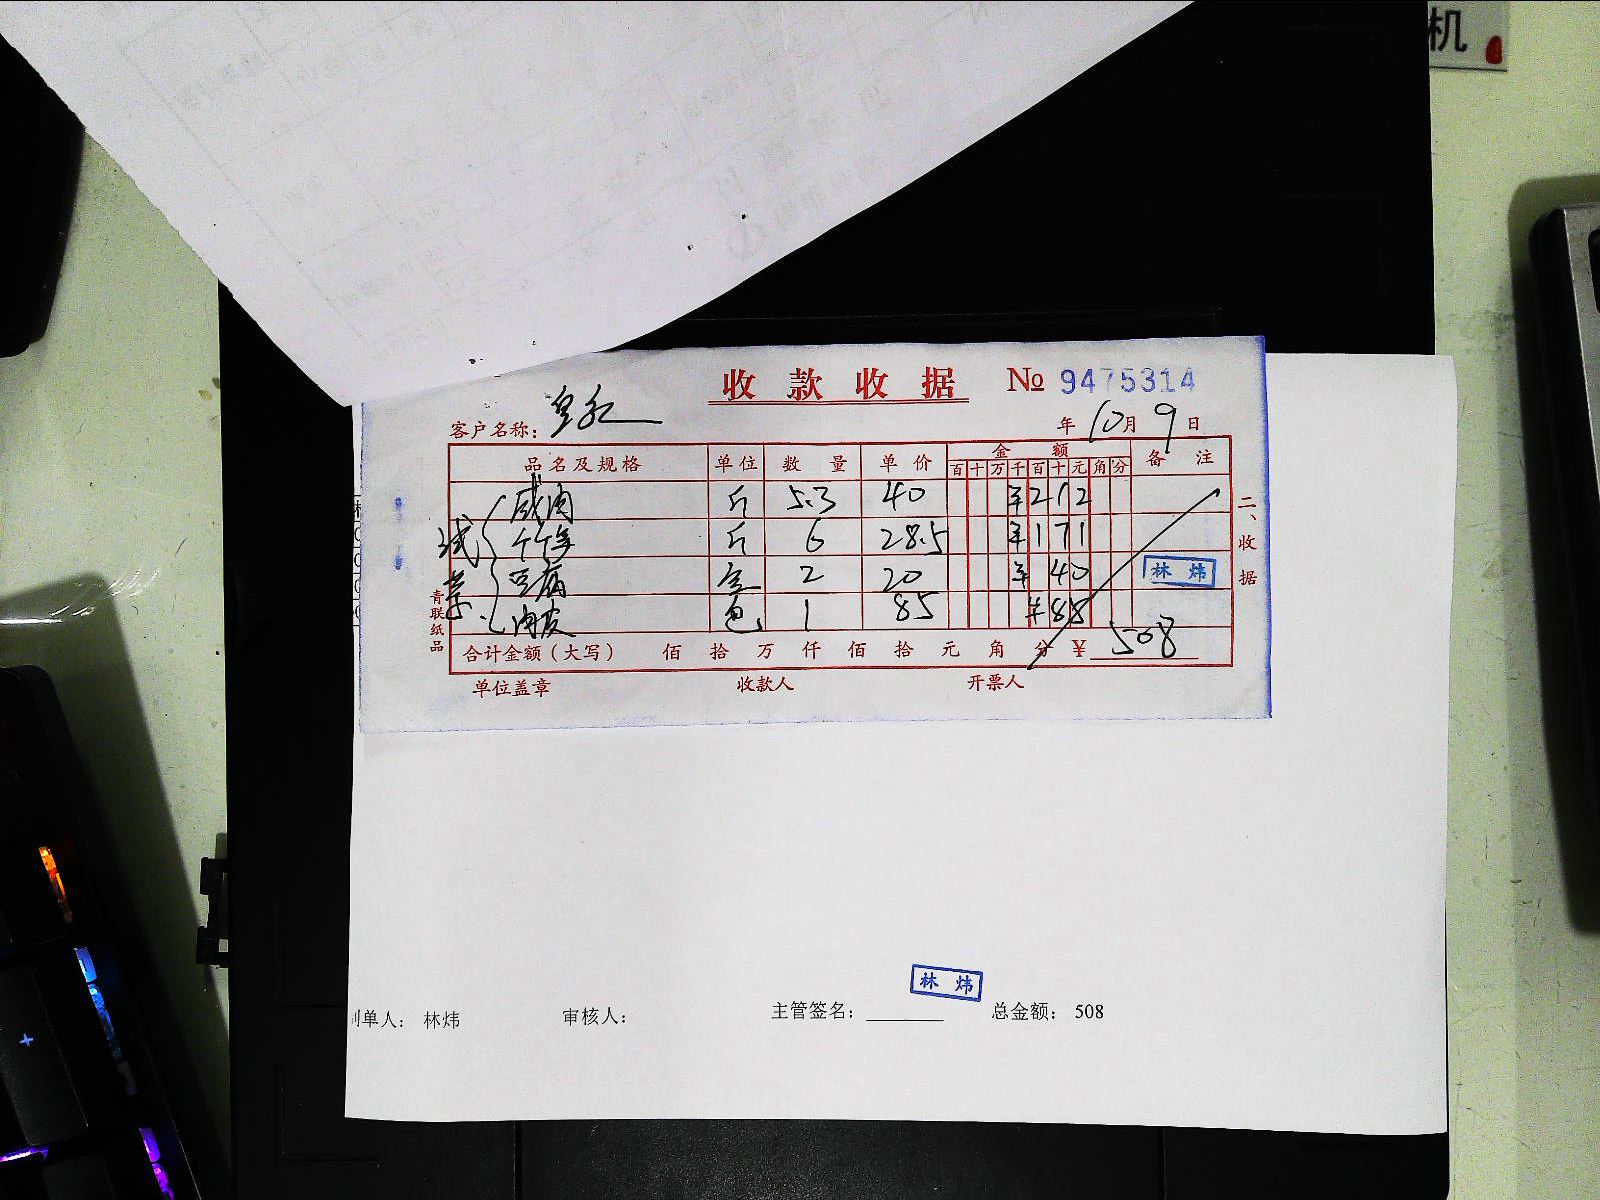 机
收款收据 № 9475314
客户名称: 皇
年 10月 9日
品名及规格 单位 数量 单价 金额 备注
百 十 万 千 百 十 元 角 分
咸肉 斤 5.3 40 ¥212
斤 6 28.5 ¥171
豆腐 2 20 ¥40
肉皮 包 1 85 ¥85
试菜
林炜
合计金额(大写) 佰 拾 万 仟 佰 拾 元 角 分 ¥ 508
单位盖章 收款人 开票人
二、收据
青联纸品
林炜
制单人: 林炜 审核人: 主管签名: 总金额: 508